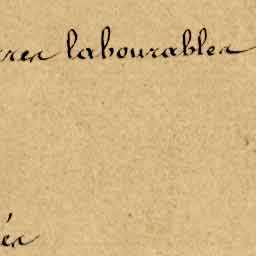 rres labourables
és